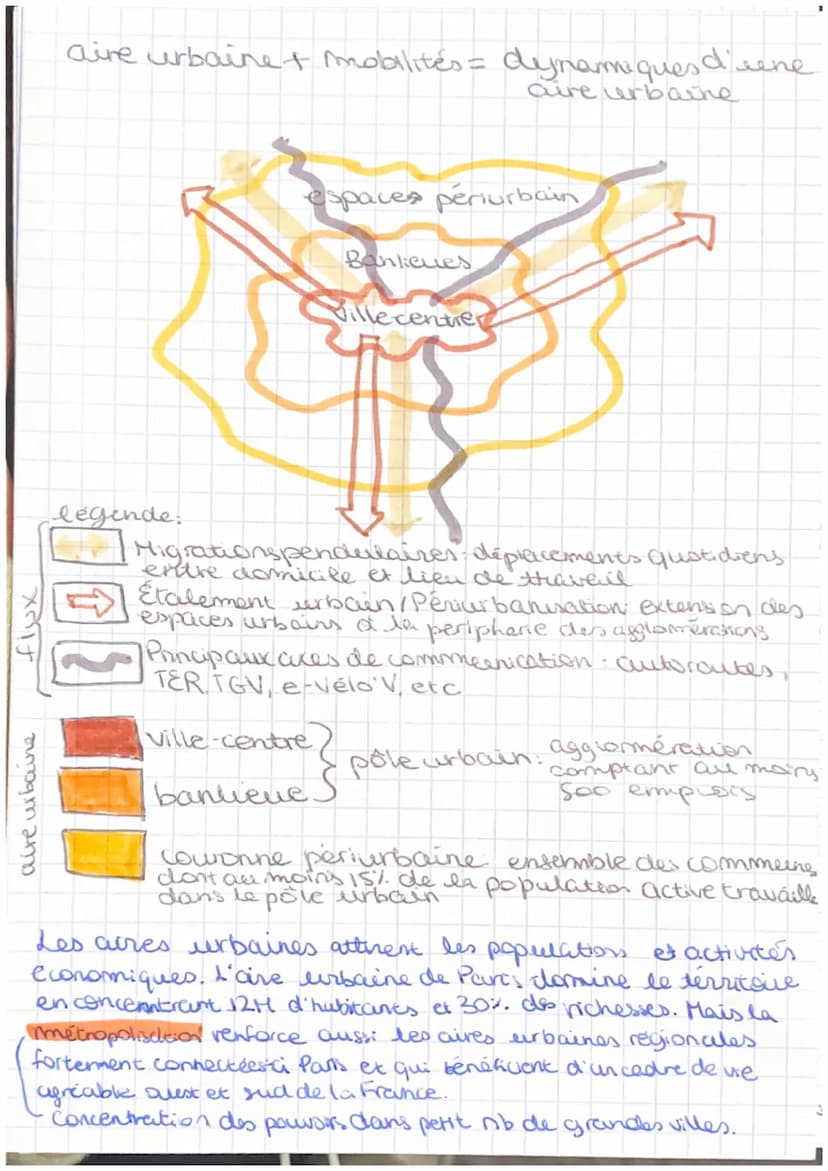 aire urbaine + mobilités = dynamiques d'une
aire urbaine
espaces périurbain
Banlieues
Ville centre
légende:
flux
Migrations pendulaires: déplacements quotidiens
entre domicile et lieu de travail
Étalement urbain/Périurbanisation: extension des
espaces urbains à la périphérie des agglomérations
Principaux axes de communication: autoroutes,
TER, TGV, e-vélo'V, etc
aire urbaine
ville-centre
banlieue
pôle urbain: agglomération
comptant au moins
500 emplois
couronne périurbaine: ensemble des communes
dont au moins 15% de la population active travaille
dans le pôle urbain
Les aires urbaines attirent les populations et activités
économiques. L'aire urbaine de Paris domine le térritoire
en concentrant 12M d'habitants et 30% des richesses. Mais la
métropolisation renforce aussi les aires urbaines régionales
fortement connectées à Paris et qui bénéficient d'un cadre de vie
agréable ouest et sud de la France.
Concentration des pouvoirs dans petit nb de grandes villes.